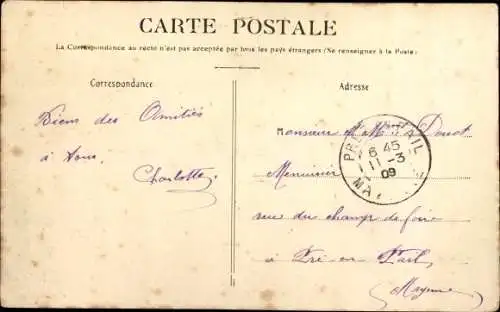 CARTE POSTALE
La Correspondance au recto n'est pas acceptée par tous les pays étrangers (Se renseigner à la Poste)
Correspondance
Adresse
Bien des Amitiés
à tous,
Charlotte
Monsieur et Mme
Menuisier
rue du champ de foire
à Pré-en-Pail
Mayenne
PRÉ-EN-PAIL
6 45
11 -3
09
MA